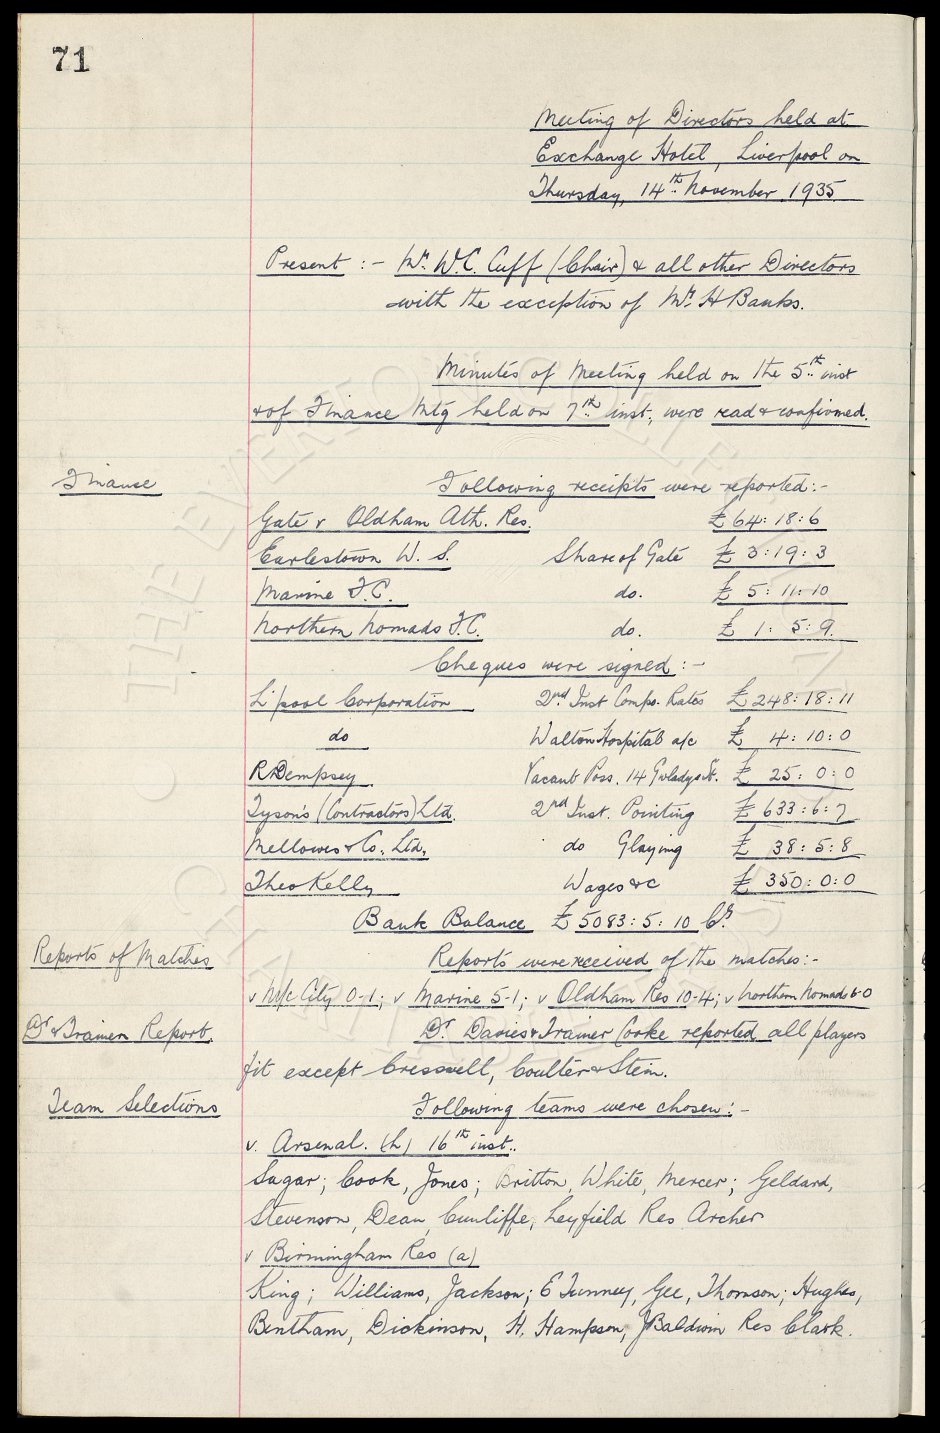 71
Meeting of Directors held at
Exchange Hotel, Liverpool on
Thursday, 14th November 1935.
Present :- Mr. W.C. Cuff (Chair) & all other Directors
with the exception of Mr. H Banks.
Minutes of Meeting held on the 5th inst
& of Finance Mtg held on 7th inst, were read & confirmed.
Finance Following receipts were reported:-
Gate v Oldham Ath. Res. £64:18:6
Earlestown W. S. Share of Gate £ 3:19:3
Marine F.C. do. £ 5:11:10
Northern Nomads F.C. do. £ 1:5:9.
Cheques were signed :-
L'pool Corporation 2nd Inst Compo. Rates £248:18:11
do Walton Hospital a/c £ 4:10:0
R Dempsey Vacant Poss. 14 Gwladys St. £ 25:0:0
Tyson's (Contractors) Ltd. 2nd Inst. Pointing £633:6:7
Mellowes & Co. Ltd, do Glazing £ 38:5:8
Theo Kelly Wages &c £ 350:0:0
Bank Balance £5083:5:10 Cr.
Reports of Matches Reports were received of the matches:-
v M/c City 0-1; v Marine 5-1; v Oldham Res 10-4; v Northern Nomads 6-0
Dr & Trainers Report. Dr. Davies & Trainer Cooke reported all players
fit except Cresswell, Coulter & Stein.
Team Selections Following teams were chosen:-
v. Arsenal. (h) 16th inst.
Sagar; Cook, Jones; Britton, White, Mercer; Geldard,
Stevenson, Dean, Cunliffe, Leyfield Res Archer
v Birmingham Res (a)
King; Williams, Jackson; E Tunney, Gee, Thomson; Hughes,
Bentham, Dickinson, H. Hampson, J Baldwin Res Clark.
THE EVERTON COLLECTION